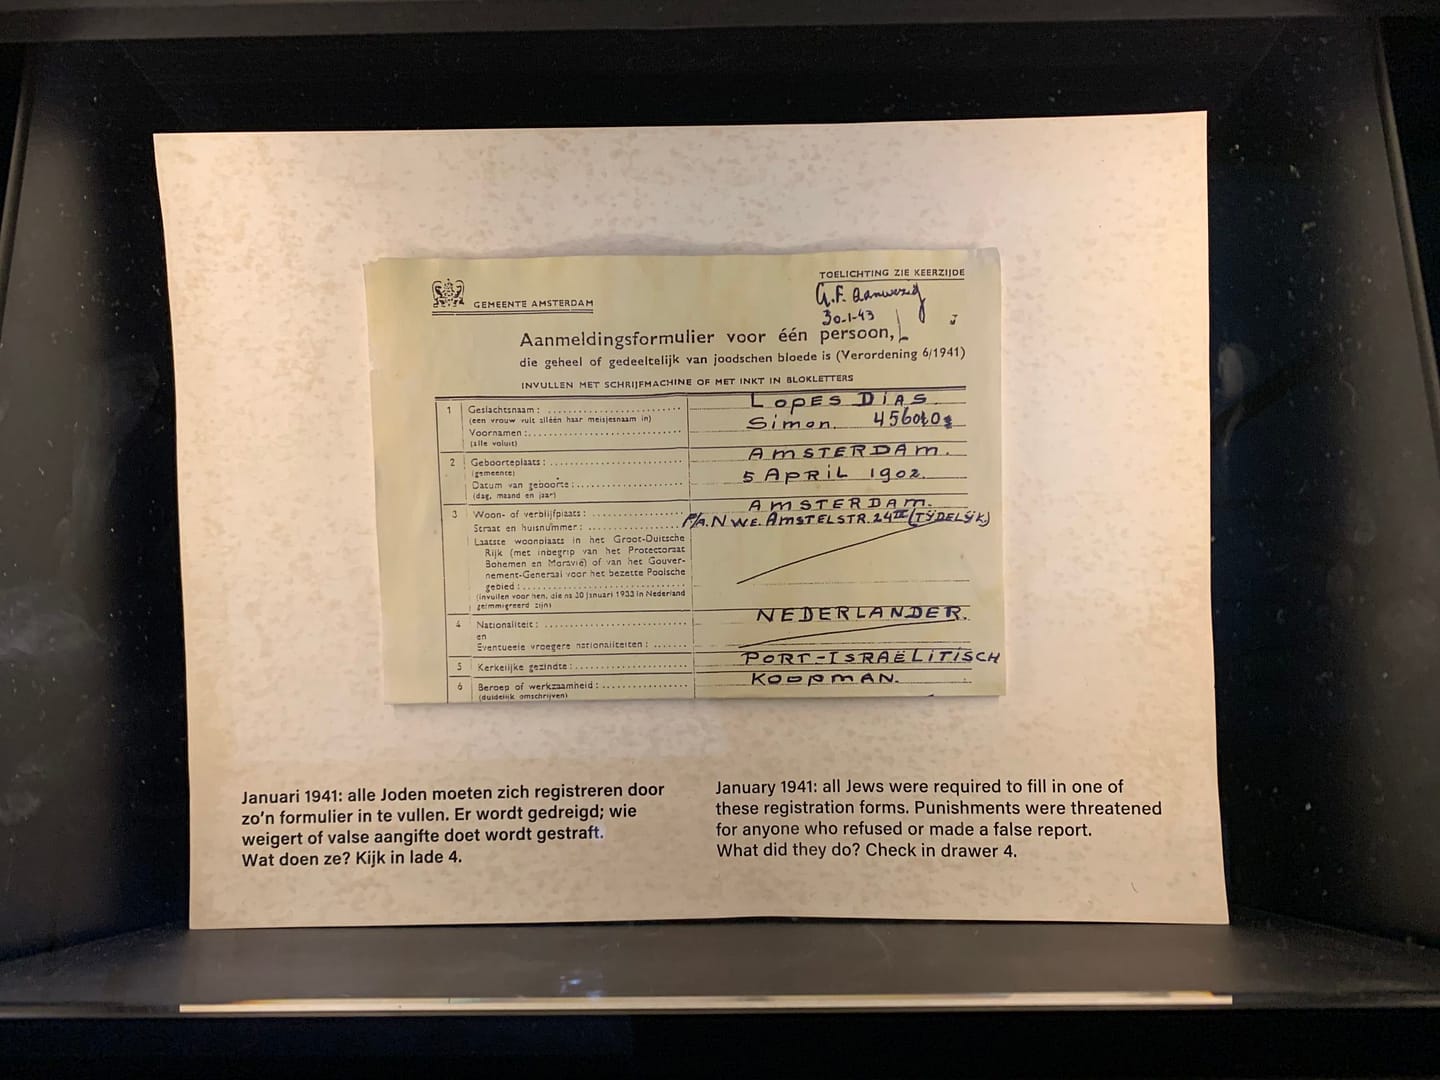 GEMEENTE AMSTERDAM
TOELICHTING ZIE KEERZIJDE
G.F. Aanwezig
30-1-43
J
Aanmeldingsformulier voor één persoon,
die geheel of gedeeltelijk van joodschen bloede is (Verordening 6/1941)
INVULLEN MET SCHRIJFMACHINE OF MET INKT IN BLOKLETTERS
1 Geslachtsnaam: LOPES DIAS
(een vrouw vult alléén haar meisjesnaam in)
Voornamen: Simon.
(alle voluit)
2 Geboorteplaats: AMSTERDAM.
(gemeente)
Datum van geboorte: 5 APRIL 1902.
(dag, maand en jaar)
3 Woon- of verblijfplaats: AMSTERDAM.
Straat en huisnummer: P/A. NWE. AMSTELSTR. 24 II (TIJDELIJK)
Laatste woonplaats in het Groot-Duitsche
Rijk (met inbegrip van het Protectoraat
Bohemen en Moravië) of van het Gouver-
nement-Generaal voor het bezette Poolsche
gebied:
(invullen voor hen, die na 30 Januari 1933 in Nederland
geïmmigreerd zijn)
4 Nationaliteit: NEDERLANDER.
en
Eventueele vroegere nationaliteiten:
5 Kerkelijke gezindte: PORT-ISRAËLITISCH
6 Beroep of werkzaamheid: KOOPMAN.
(duidelijk omschrijven)
Januari 1941: alle Joden moeten zich registreren door
zo'n formulier in te vullen. Er wordt gedreigd; wie
weigert of valse aangifte doet wordt gestraft.
Wat doen ze? Kijk in lade 4.
January 1941: all Jews were required to fill in one of
these registration forms. Punishments were threatened
for anyone who refused or made a false report.
What did they do? Check in drawer 4.